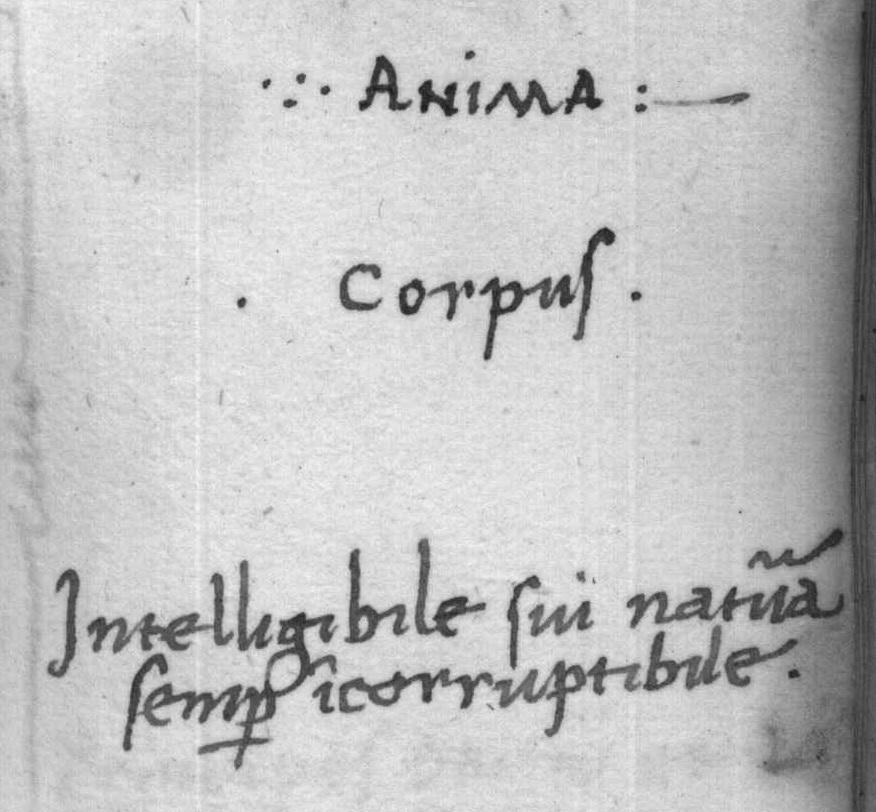 ∵ ANiMA :—
. Corpuſ .
Intelligibile ſui natuᷓa
ſemꝑ îcorruptibile.